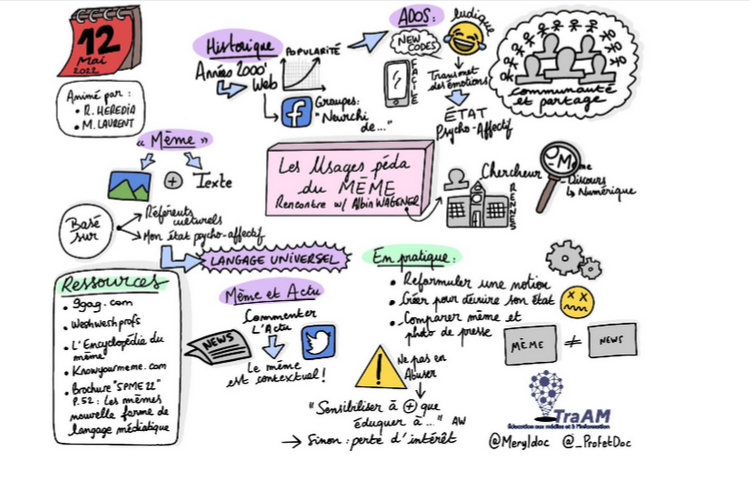 12
Mai
2022
Animé par :
• R. HEREDIA
• M. LAURENT
Historique
Années 2000
Web
POPULARITÉ
Groupes:
"Neurchi
de..."
ADOS:
ludique
NEW
CODES
FACILE
Transmet
des émotions
ÉTAT
Psycho-Affectif
communauté
et partage
« Mème »
Texte
Basé
sur
Référents
culturels
Mon état psycho-affectif
LANGAGE UNIVERSEL
Les Usages péda
du MÈME
Rencontre w/ Albin WAGENER
Chercheur
RENNES
Mème
Discours
Numérique
Ressources
• 9gag.com
• Weshweshprofs
• L'Encyclopédie du
mème
• Knowyourmeme.com
• Brochure "SPME 22"
P.52 : Les mèmes
nouvelle forme de
langage médiatique
Mème et Actu
Commenter
L'Actu
NEWS
Le mème
est contextuel !
En pratique :
• Reformuler une notion
• Créer pour décrire son état
• Comparer mème et
photo de presse
MÈME ≠ NEWS
!
Ne pas en
Abuser
"Sensibiliser à + que
éduquer à..." AW
→ Sinon : perte d'intérêt
TraAM
Éducation aux médias et à l'information
@Meryldoc @_ProfetDoc